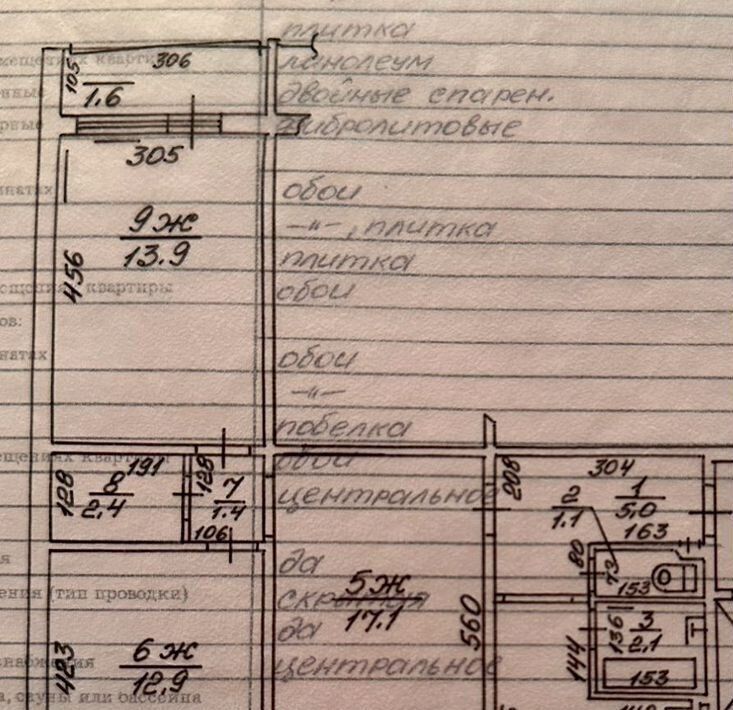 плитка
306
мещениях кварти
линолеум
105
1.6
нные
двойные спарен.
рные
фибролитовые
305
натах
обои
9ж
13.9
—"—, плитка
плитка
456
ещениях квартиры
обои
ов:
натах
обои
—"—
побелка
ещениях кварти
обои
191
128
8
2.4
128
7
1.4
106
центральное
208
304
2
1.1
1
5.0
163
да
80
73
153
ения (тип проводки)
скрытая
5ж
17.1
560
да
136
3
2.1
144
153
снабжения
центральное
423
6ж
12.9
а, сауны или бассейна